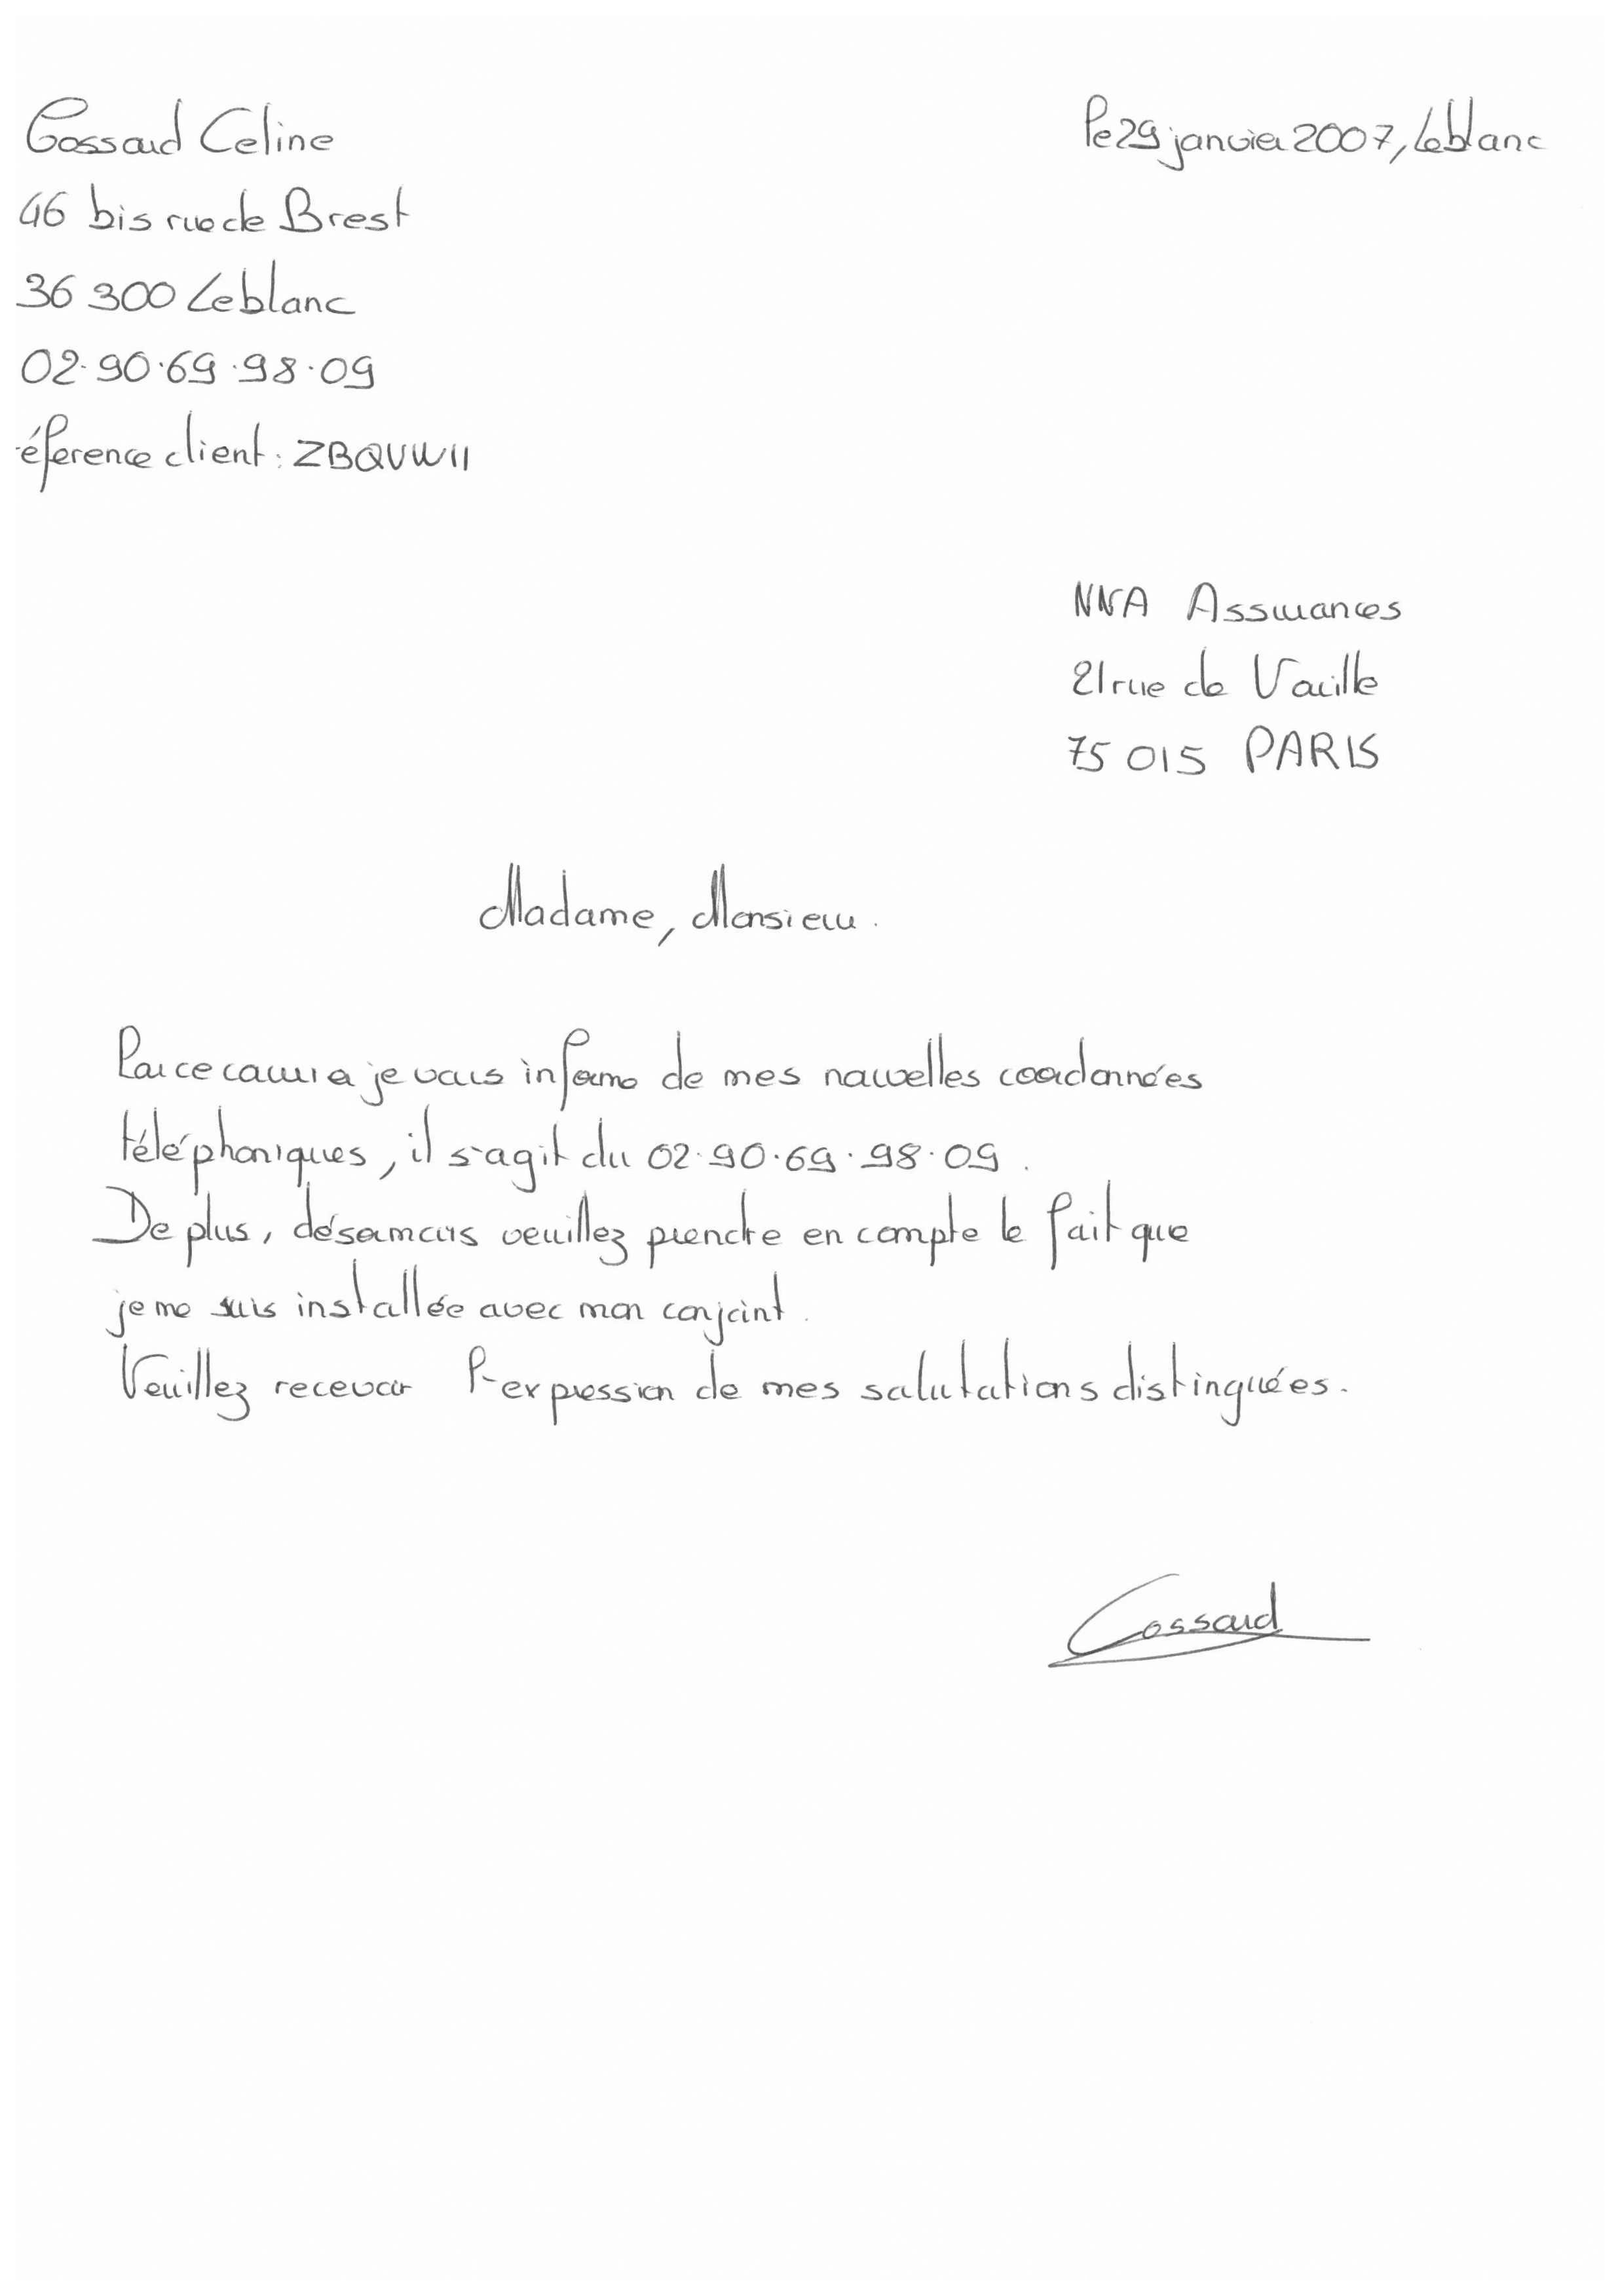 Cossard Celine
Le 29 janvier 2007, Leblanc
46 bis rue de Brest
36 300 Leblanc
02.90.69.98.09
éference client : ZBQVW11
NNA Assurances
21 rue de Vaille
75 015 PARIS
Madame, Monsieur.
Par ce courrier je vous informe de mes nouvelles coordonnées
téléphoniques, il s'agit du 02.90.69.98.09.
De plus, désormais veuillez prendre en compte le fait que
je me suis installée avec mon conjoint.
Veuillez recevoir l'expression de mes salutations distinguées.
Cossard